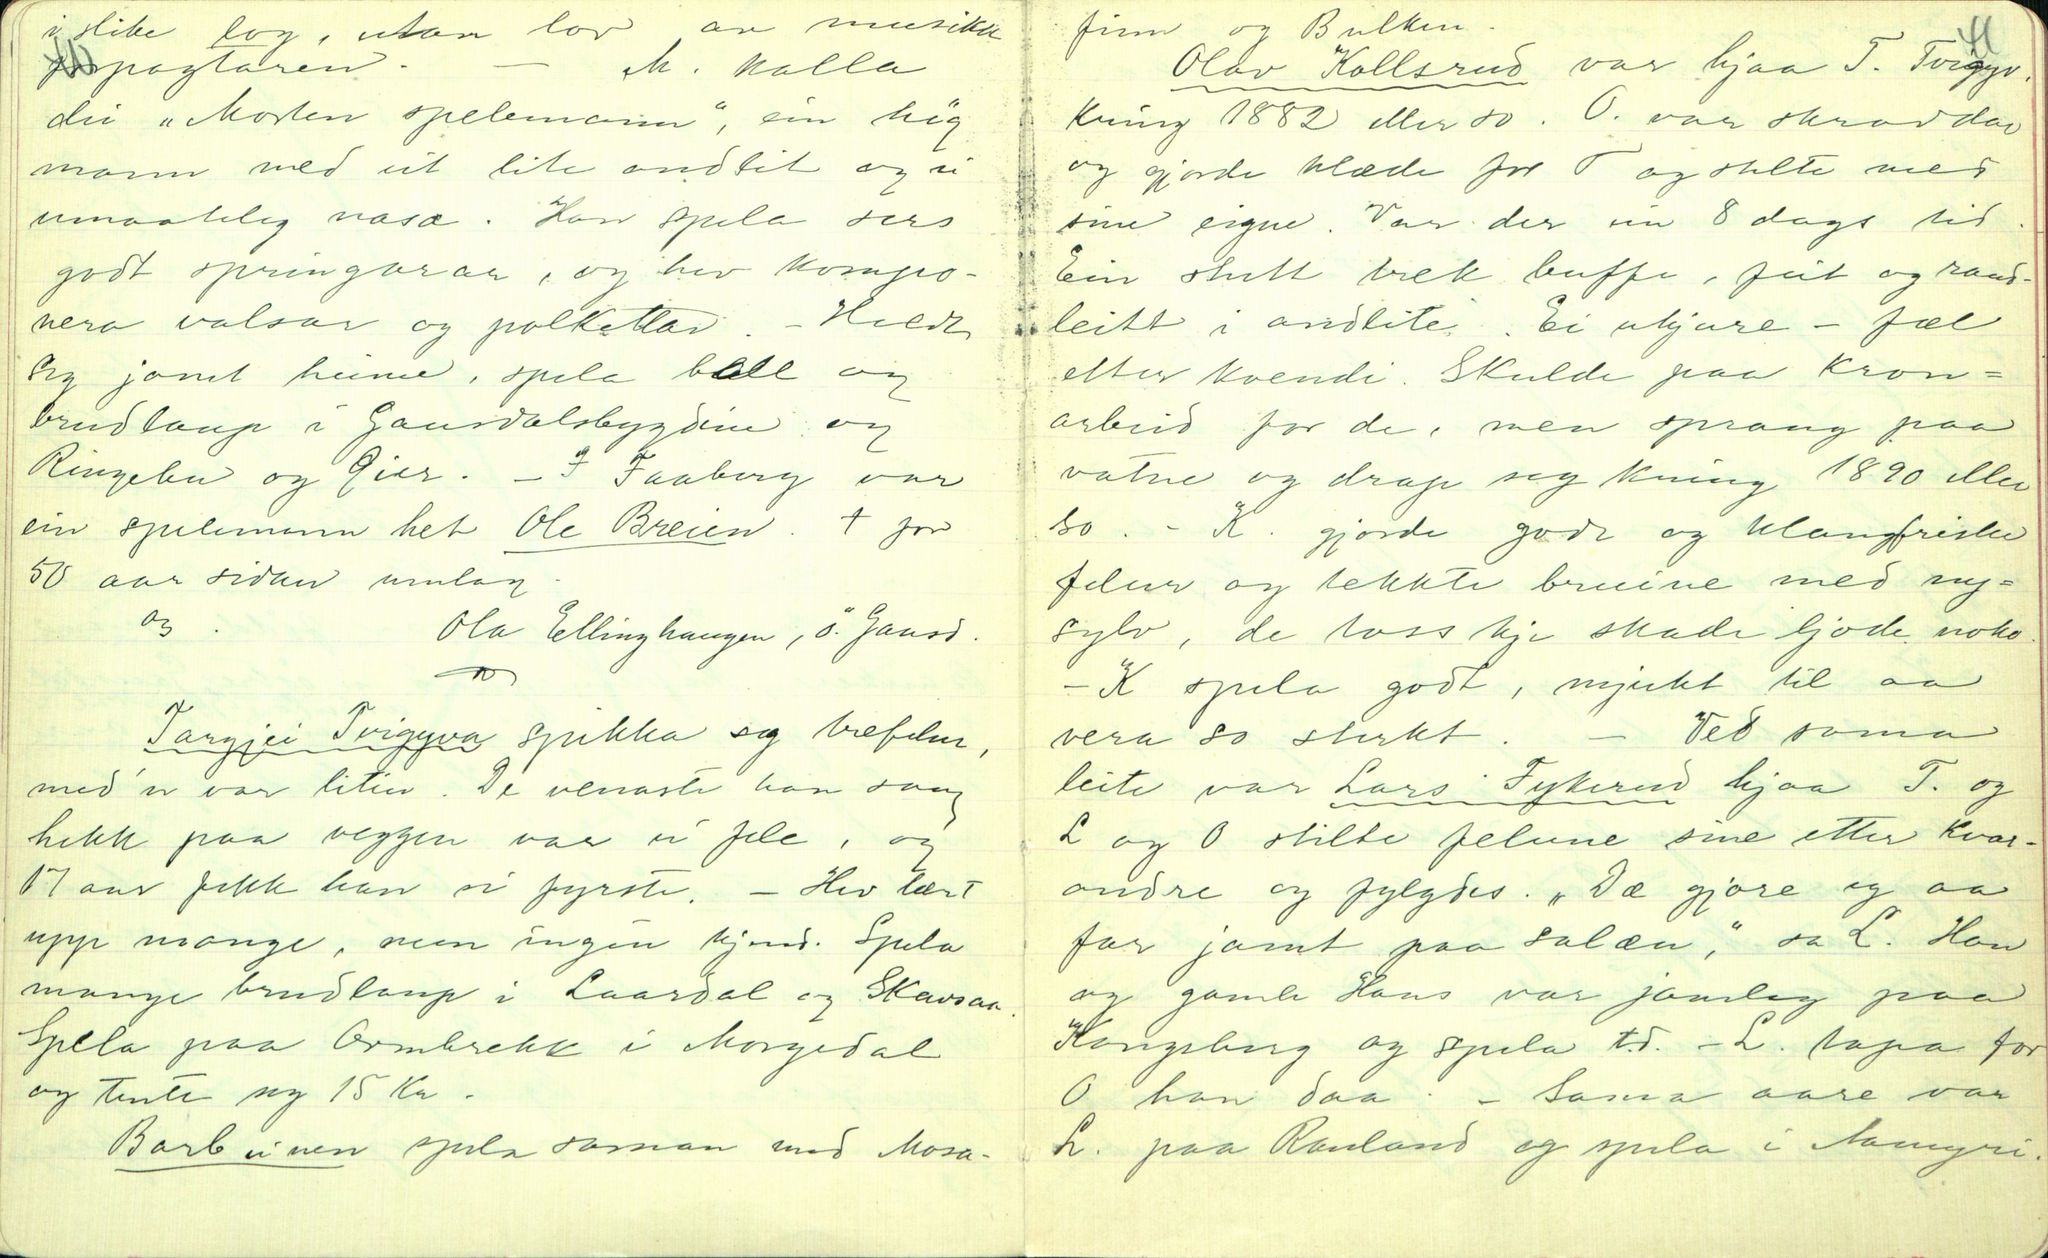 i slike log, utan lov av musikk
forpagtaren. — M. kalla
dei "Morten spelemann", ein høg
mann med eit lite andlit og ei
umaateleg nase. Han spela sers
godt springarar, og hev kompo-
nera valsar og polkettar. – Heldt
seg jamt heime, spela ball og
brudlaup i Gausdalsbygdine og
Ringebu og Øier. – I Faaberg var
ein spelemann het Ole Breien. † for
50 aar sidan umlag.
og
Ola Ellinghaugen, ö. Gausd.
Targjei Tvigyva spikka seg trefelur,
med'n var liten. De venaste han saag
hekk paa veggen var ei fele, og
17 aar fekk han si fyrste. – Hev lært
upp mange, men ingen kjend. Spela
mange brudlaup i Laardal og Skavsaa.
Spela paa Ormbrekk i Morgedal
og tente seg 15 Kr.
Barbeinen spela saman med Mosa-
41
finn og Bulken.
Olav Kollsrud var hjaa T. Tvigyv.
kring 1882 eller so. O. var skraddar
og gjorde klæde for T og stelte med
sine eigne. Var der ein 8 dags tid.
Ein stutt trek buffe, feit og raud-
leitt i andlite. Ei ukjure – fæl
etter kvendi. Skulde paa Kron-
arbeid for de, men sprang paa
vatne og drap seg kring 1890 eller
so. – K. gjorde gode og klangfriske
felur og tekkte breiine med ny-
sylv, de toss kje skade ljode noko.
– K spela godt, mjukt til aa
vera so sterkt. – Ved sama
leite var Lars Fykerud hjaa T. og
L og O stilte felune sine etter kvar-
andre og fylgdes. "Dæ gjore eg aa
far jamt paa salæn," sa L. Han
og gamle Hans var jamleg paa
Kongsberg og spela t.d. – L. tapa for
O han daa. – Sama aare var
L. paa Rauland og spela i